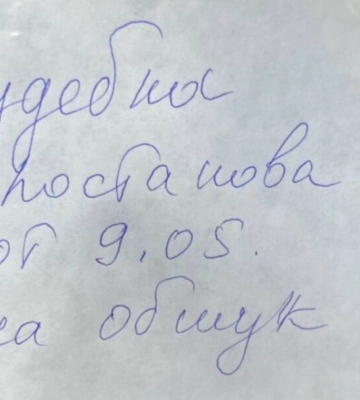 удебна
постанова
от 9.05.
на обшук